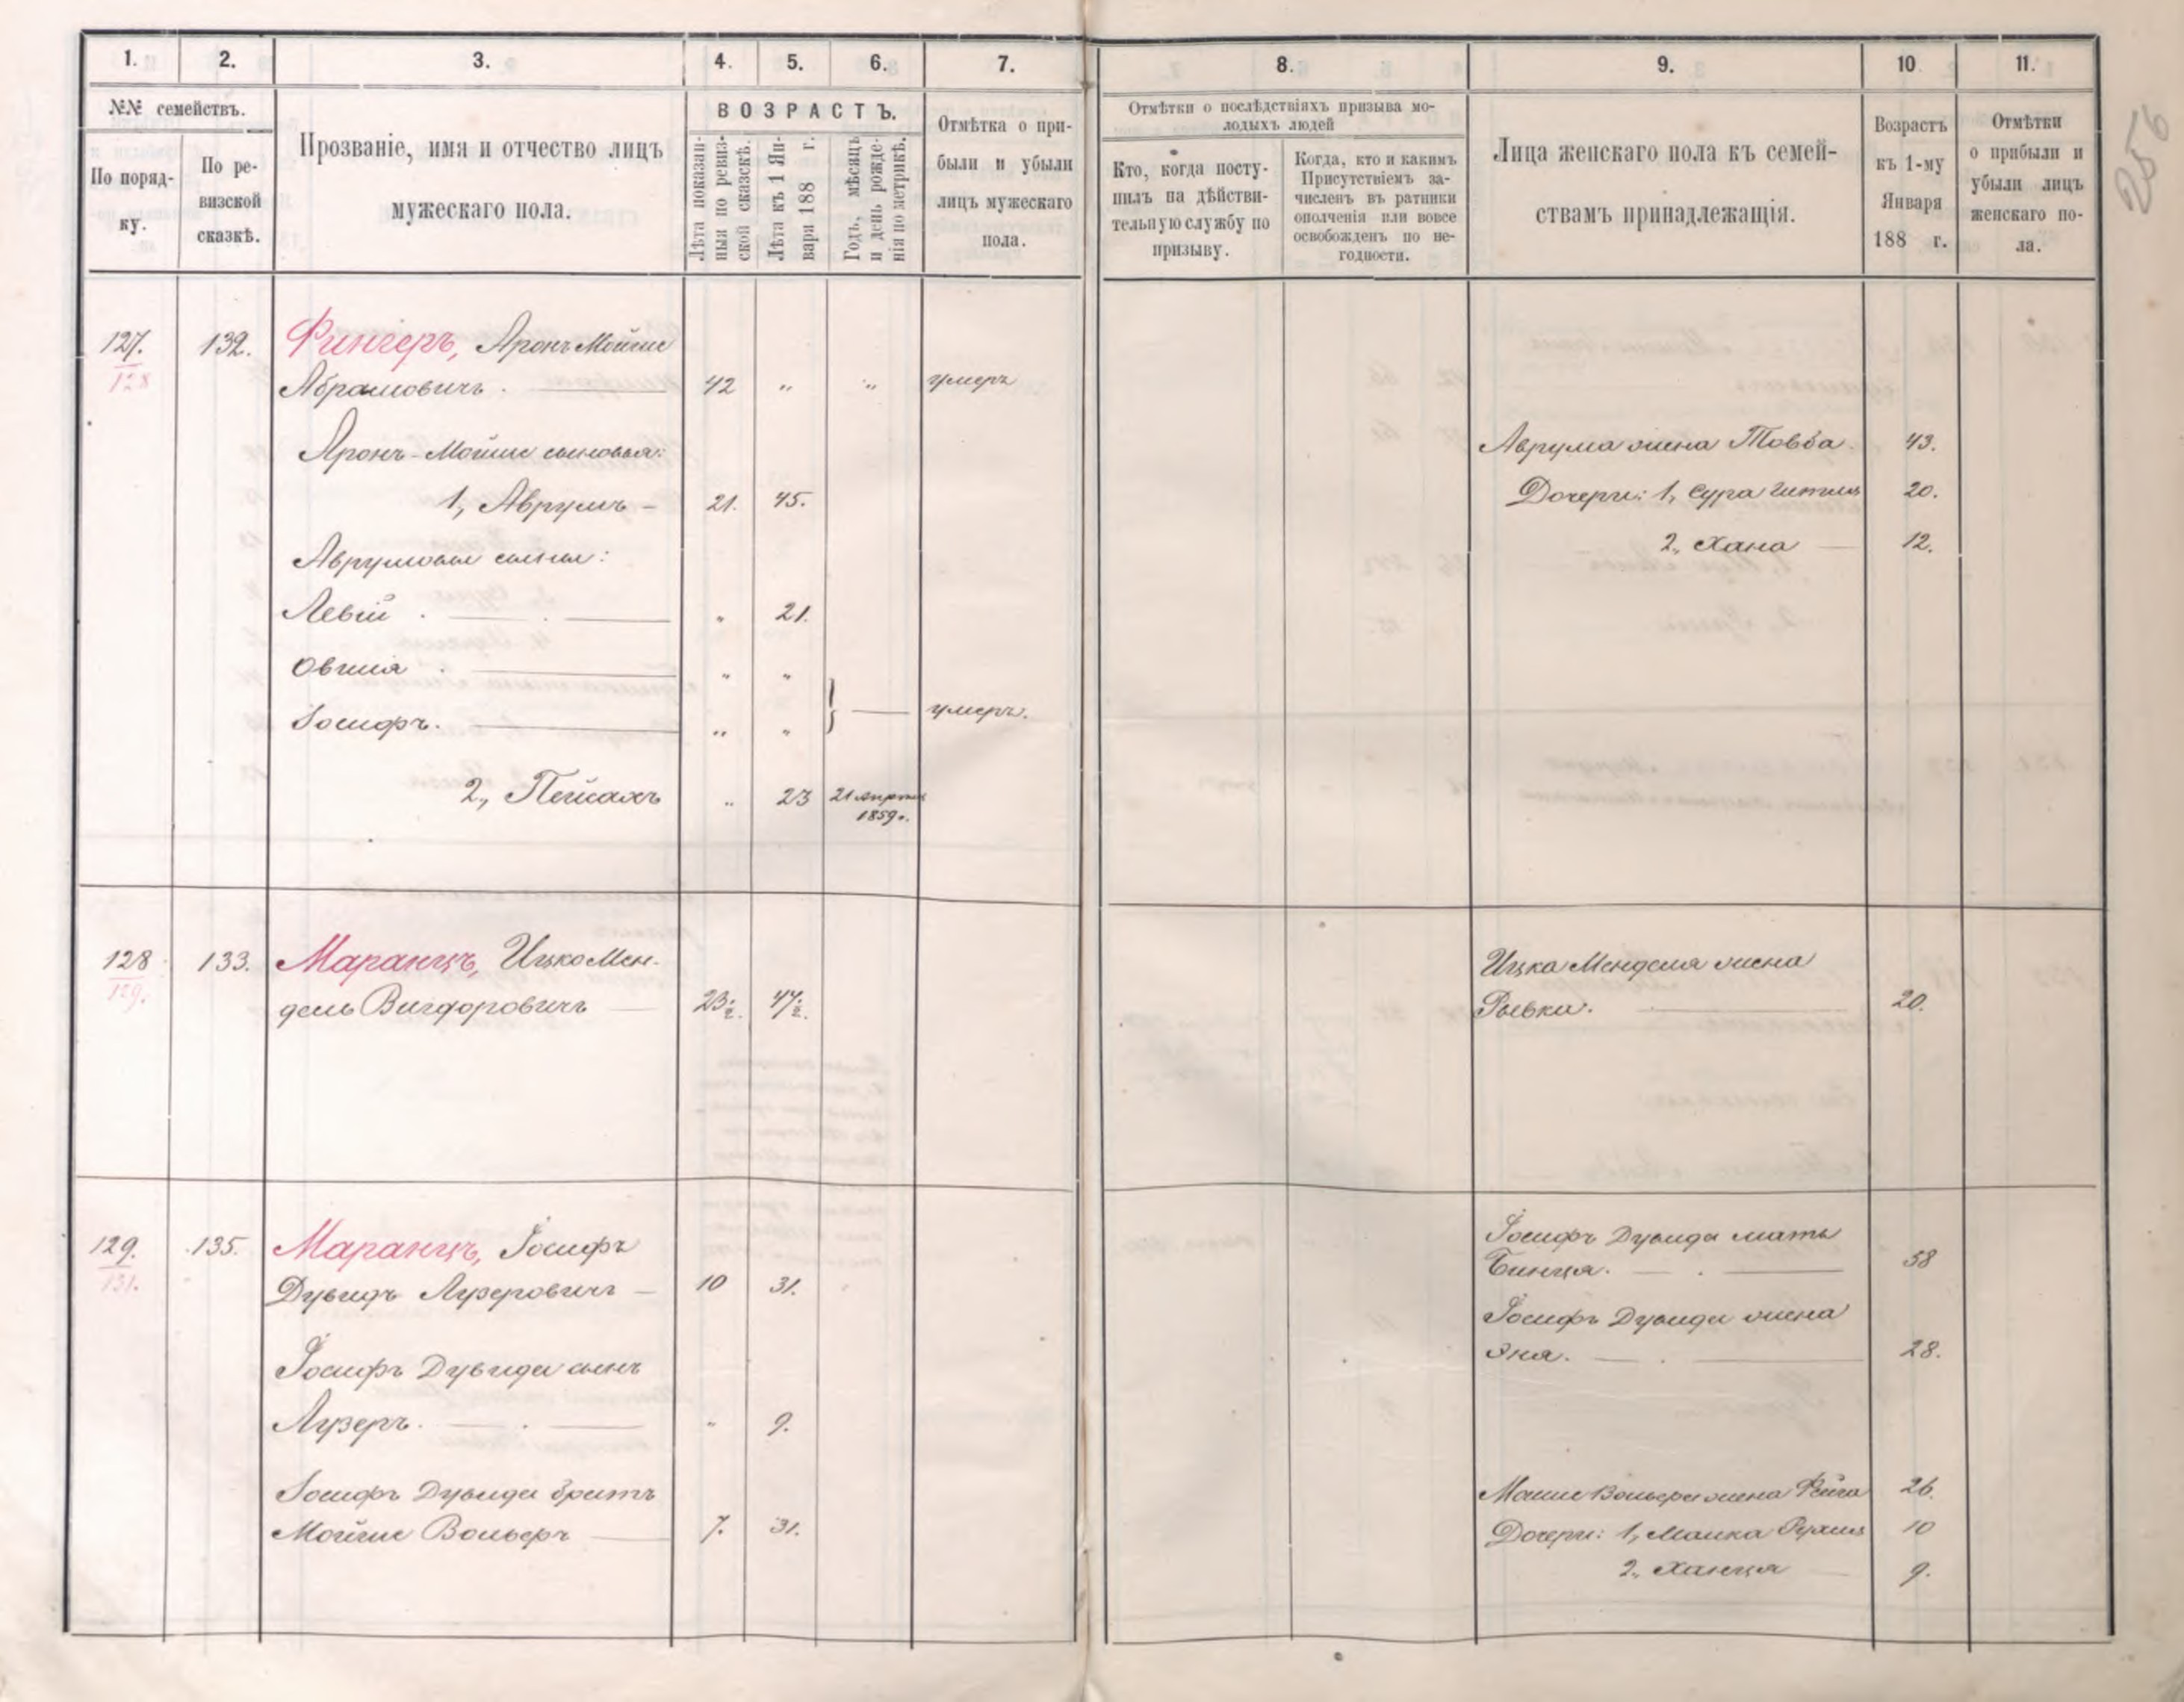 256
1. 2. 3. 4. 5. 6. 7. 8. 9. 10 11.
№№ семействъ.
По поряд-
ку.
По ре-
визской
сказкѣ.
Прозваніе, имя и отчество лицъ
мужескаго пола.
ВОЗРАСТЪ.
Лѣта показан-
ныя по ревиз-
ской сказкѣ.
Лѣта къ 1 Ян-
варя 188 г.
Годъ, мѣсяцъ
и день рожде-
нія по метрикѣ.
Отмѣтка о при-
были и убыли
лицъ мужескаго
пола.
Отмѣтки о послѣдствіяхъ призыва мо-
лодыхъ людей
Кто, когда посту-
пилъ на дѣйстви-
тельную службу по
призыву.
Когда, кто и какимъ
Присутствіемъ за-
численъ въ ратники
ополченія или вовсе
освобожденъ по не-
годности.
Лица женскаго пола къ семей-
ствамъ принадлежащія.
Возрастъ
къ 1-му
Января
188 г.
Отмѣтки
о прибыли и
убыли лицъ
женскаго по-
ла.
127. 132. Фингеръ, Аронъ Мойше
128 Абрамовичъ. 42 " " умеръ
Аронъ-Мойше сыновья:
1, Аврумъ - 21. 45.
Аврумовы сыны:
Левій " 21.
Овшія " "
Іосифъ. " " умеръ.
2, Пейсахъ " 23 21 апрѣля
1859 г.
Аврума жена Товба. 43.
Дочери: 1, Сура Гитля 20.
2, Хана 12.
128 133. Маранцъ, Ицко Мен-
129. дель Вигдоровичъ 23½. 47½.
Ицка Менделя жена
Рывка. 20.
129. 135. Маранцъ, Іосифъ
131. Дувидъ Лузеровичъ 10 31.
Іосифъ Дувида сынъ
Лузеръ. " 9.
Іосифъ Дувида братъ
Мойше Вольфъ 7. 31.
Іосифъ Дувида мать
Бинця. 58
Іосифъ Дувида жена
Эня. 28.
Мойше Вольфа жена Фейга 26.
Дочери: 1, Малка Рухля 10
2, Ханця 9.